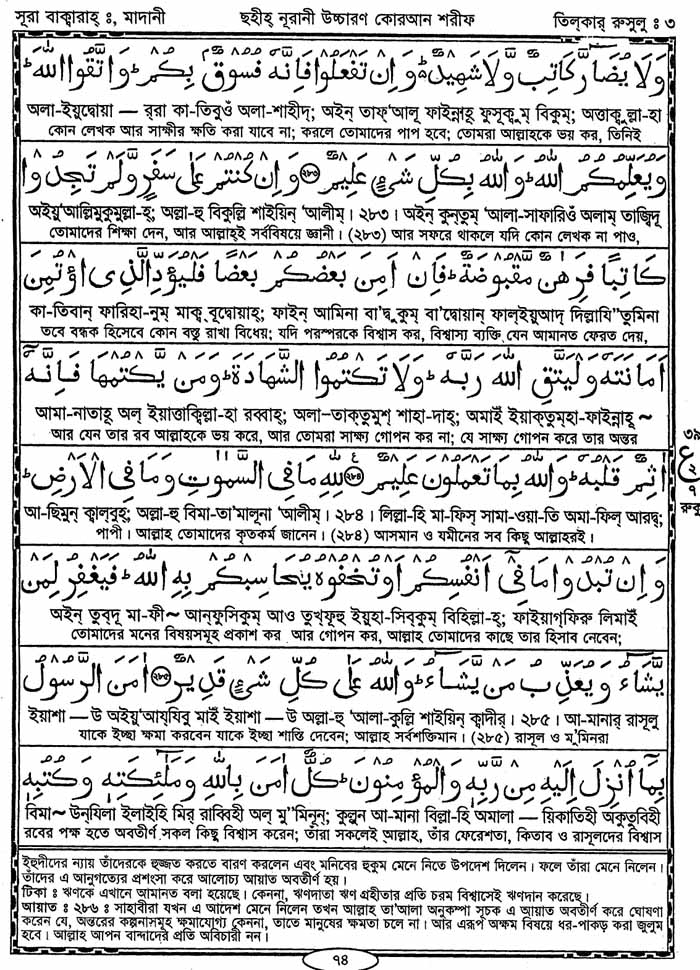 সূরা বাক্বারাহ্ ঃ, মাদানী ছহীহ্ নূরানী উচ্চারণ কোরআন শরীফ তিল্কার্ রুসুলু ঃ ৩
وَلَا يُضَآرَّ كَاتِبٌ وَّلَا شَهِيْدٌ ؕ وَاِنْ تَفْعَلُوْا فَاِنَّهٗ فُسُوْقٌۢ بِكُمْ ؕ وَاتَّقُوا اللّٰهَ ؕ
অলা-ইয়ুদ্বোয়া — র্‌রা কা-তিবুওঁ অলা-শাহীদ্; অইন্ তাফ্'আলূ ফাইন্নাহূ ফুসূকুম্ বিকুম্; অত্তাকুল্লা-হা
কোন লেখক আর সাক্ষীর ক্ষতি করা যাবে না; করলে তোমাদের পাপ হবে; তোমরা আল্লাহকে ভয় কর, তিনিই
وَيُعَلِّمُكُمُ اللّٰهُ ؕ وَاللّٰهُ بِكُلِّ شَىْءٍ عَلِيْمٌ ۝۲۸۳ وَاِنْ كُنْتُمْ عَلٰى سَفَرٍ وَّلَمْ تَجِدُوْا
অইয়ু'আল্লিমুকুমুল্লা-হ্; অল্লা-হু বিকুল্লি শাইয়িন্ 'আলীম্। ২৮৩। অইন্ কুন্তুম্ 'আলা-সাফারিওঁ অলাম্ তাজ্বিদূ
তোমাদের শিক্ষা দেন, আর আল্লাহই সর্ববিষয়ে জ্ঞানী। (২৮৩) আর সফরে থাকলে যদি কোন লেখক না পাও,
كَاتِبًا فَرِهٰنٌ مَّقْبُوْضَةٌ ؕ فَاِنْ اَمِنَ بَعْضُكُمْ بَعْضًا فَلْيُؤَدِّ الَّذِى اؤْتُمِنَ
কা-তিবান্ ফারিহা-নুম্ মাক্ব্ বূদ্বোয়াহ্; ফাইন্ আমিনা বা'দ্বুকুম্ বা'দ্বোয়ান্ ফাল্ইয়ুআদ্ দিল্লাযি"তুমিনা
তবে বন্ধক হিসেবে কোন বস্তু রাখা বিধেয়; যদি পরস্পরকে বিশ্বাস কর, বিশ্বাস্য ব্যক্তি যেন আমানত ফেরত দেয়,
اَمَانَتَهٗ وَلْيَتَّقِ اللّٰهَ رَبَّهٗ ؕ وَلَا تَكْتُمُوا الشَّهَادَةَ ؕ وَمَنْ يَّكْتُمْهَا فَاِنَّهٗٓ
আমা-নাতাহূ অল্ ইয়াত্তাক্বিল্লা-হা রব্বাহ্; অলা-তাক্তুমুশ্ শাহা-দাহ্; অমাইঁ ইয়াক্তুম্হা-ফাইন্নাহূ~
আর যেন তার রব আল্লাহকে ভয় করে, আর তোমরা সাক্ষ্য গোপন কর না; যে সাক্ষ্য গোপন করে তার অন্তর
اٰثِمٌ قَلْبُهٗ ؕ وَاللّٰهُ بِمَا تَعْمَلُوْنَ عَلِيْمٌ ۝۲۸۴ لِلّٰهِ مَا فِى السَّمٰوٰتِ وَمَا فِى الْاَرْضِ ؕ
আ-ছিমুন্ ক্বাল্বুহ্; অল্লা-হু বিমা-তা'মালূনা 'আলীম্। ২৮৪। লিল্লা-হি মা-ফিস্ সামা-ওয়া-তি অমা-ফিল্ আরদ্ব;
পাপী। আল্লাহ তোমাদের কৃতকর্ম জানেন। (২৮৪) আসমান ও যমীনের সব কিছু আল্লাহরই।
৩৯
ع
২
৭
রুকু
وَاِنْ تُبْدُوْا مَا فِىْٓ اَنْفُسِكُمْ اَوْ تُخْفُوْهُ يُحَاسِبْكُمْ بِهِ اللّٰهُ ؕ فَيَغْفِرُ لِمَنْ
অইন্ তুব্দূ মা-ফী~ আন্ফুসিকুম্ আও তুখ্ফূহু ইয়ুহা-সিব্কুম্ বিহিল্লা-হ্; ফাইয়াগ্ফিরু লিমাইঁ
তোমাদের মনের বিষয়সমূহ প্রকাশ কর আর গোপন কর, আল্লাহ তোমাদের কাছে তার হিসাব নেবেন;
يَّشَآءُ وَيُعَذِّبُ مَنْ يَّشَآءُ ؕ وَاللّٰهُ عَلٰى كُلِّ شَىْءٍ قَدِيْرٌ ۝۲۸۵ اٰمَنَ الرَّسُوْلُ
ইয়াশা — উ অইয়ু'আয্যিবু মাইঁ ইয়াশা — উ অল্লা-হু 'আলা-কুল্লি শাইয়িন্ ক্বাদীর্। ২৮৫। আ-মানার্ রাসূলু
যাকে ইচ্ছা ক্ষমা করবেন যাকে ইচ্ছা শাস্তি দেবেন; আল্লাহ সর্বশক্তিমান। (২৮৫) রাসূল ও মু'মিনরা
بِمَآ اُنْزِلَ اِلَيْهِ مِنْ رَّبِّهٖ وَالْمُؤْمِنُوْنَ ؕ كُلٌّ اٰمَنَ بِاللّٰهِ وَمَلٰٓئِكَتِهٖ وَكُتُبِهٖ
বিমা~ উন্যিলা ইলাইহি মির্ রাব্বিহী অল্ মু"মিনূন্; কুল্লুন্ আ-মানা বিল্লা-হি অমালা — য়িকাতিহী অকুতুবিহী
রবের পক্ষ হতে অবতীর্ণ সকল কিছু বিশ্বাস করেন; তাঁরা সকলেই আল্লাহ, তাঁর ফেরেশতা, কিতাব ও রাসূলদের বিশ্বাস
ইহুদীদের ন্যায় তাঁদেরকে হুজ্জত করতে বারণ করলেন এবং মনিবের হুকুম মেনে নিতে উপদেশ দিলেন। ফলে তাঁরা মেনে নিলেন।
তাঁদের এ আনুগত্যের প্রশংসা করে আলোচ্য আয়াত অবতীর্ণ হয়।
টিকা ঃ ঋণকে এখানে আমানত বলা হয়েছে। কেননা, ঋণদাতা ঋণ গ্রহীতার প্রতি চরম বিশ্বাসেই ঋণদান করেছে।
আয়াত ঃ ২৮৬ ঃ সাহাবীরা যখন এ আদেশ মেনে নিলেন তখন আল্লাহ তা'আলা অনুকম্পা সূচক এ আয়াত অবতীর্ণ করে ঘোষণা
করেন যে, অন্তরের কল্পনাসমূহ ক্ষমাযোগ্য কেননা, তাতে মানুষের ক্ষমতা চলে না। আর এরূপ অক্ষম বিষয়ে ধর-পাকড় করা জুলুম
হবে। আল্লাহ আপন বান্দাদের প্রতি অবিচারী নন।
৭৪